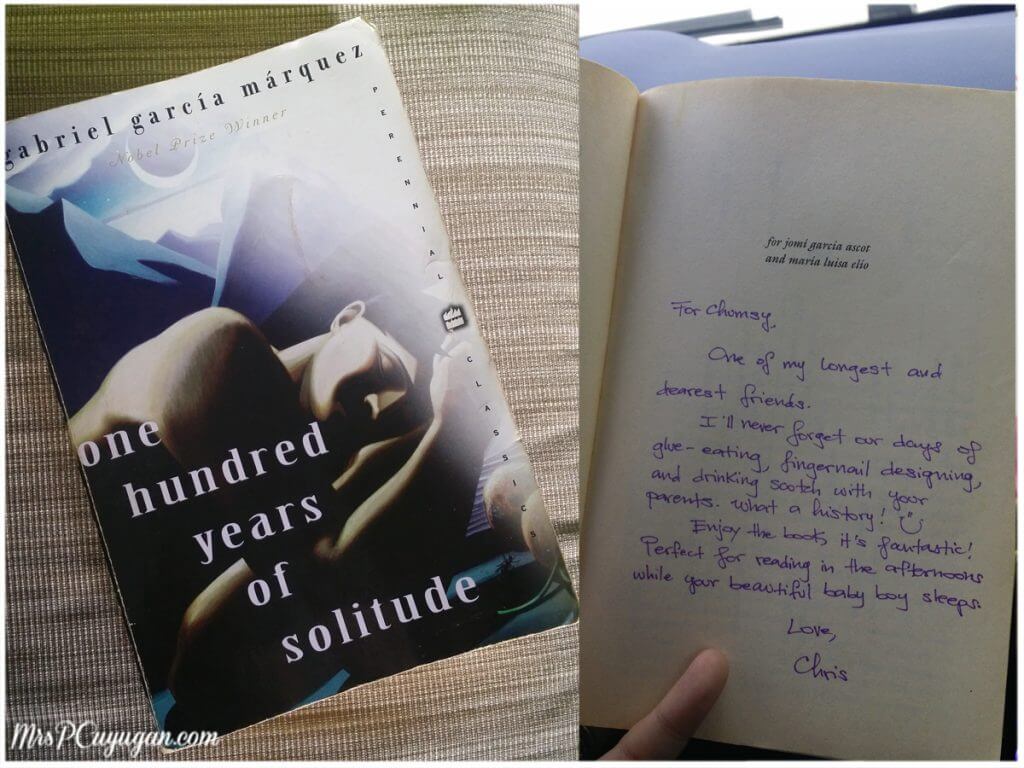 gabriel garcía márquez
Nobel Prize Winner
PERENNIAL
CLASSICS
one
hundred
years
of
solitude
MrsPCuyugan.com
for jomí garcía ascot
and maría luisa elío
For Chumsy,
One of my longest and
dearest friends.
I'll never forget our days of
glue-eating, fingernail designing,
and drinking scotch with your
parents. What a history!
Enjoy the book, it's fantastic!
Perfect for reading in the afternoons
while your beautiful baby boy sleeps.
Love,
Chris